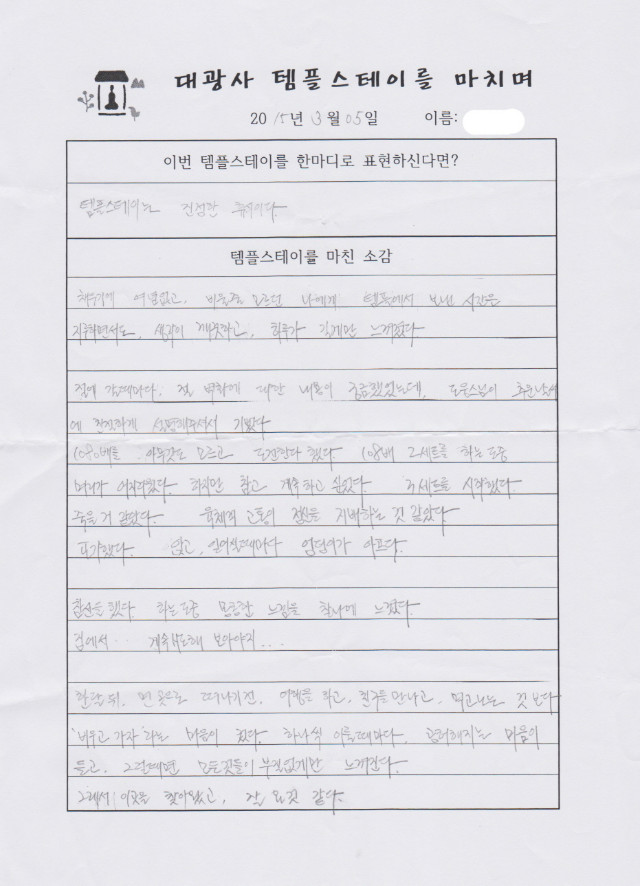 대광사 템플스테이를 마치며
2015년 3월 05일 이름:
이번 템플스테이를 한마디로 표현하신다면?
템플스테이는 건전한 휴식이다.
템플스테이를 마친 소감
채우기에 여념없고, 비울줄 모르던 나에게 템플에서 보낸 시간은
지루하면서도, 생각이 깨끗하고, 하루가 길게만 느껴졌다.
절에 갈때마다. 절 벽화에 대한 내용이 궁금했었는데, 도운스님이 추운날씨
에 친절하게 설명해주셔서 기뻤다.
1080배를 아무것도 모르고 도전한다 했다. 108배 2세트를 하는 도중
머리가 어지러웠다. 하지만 참고 계속하고 싶었다. 3세트를 시작했다
죽을 거 같았다. 육체의 고통이 정신을 지배하는 것 같았다.
포기했다. 앉고, 일어설때마다 엉덩이가 아프다.
참선을 했다. 하는 도중 몽롱한 느낌을 찰나에 느꼈다.
집에서… 계속 시도해 보아야지...
한달뒤. 먼 곳으로 떠나기전. 여행을 하고, 친구를 만나고, 먹고노는 것 보다
'비우고 가자' 라는 마음이 컸다. 하나씩 이룰때마다. 공허해지는 마음이
들고, 그럴때면 모든것들이 부질없게만 느껴진다.
그래서 이곳을 찾아왔고, 잘 온것 같다.